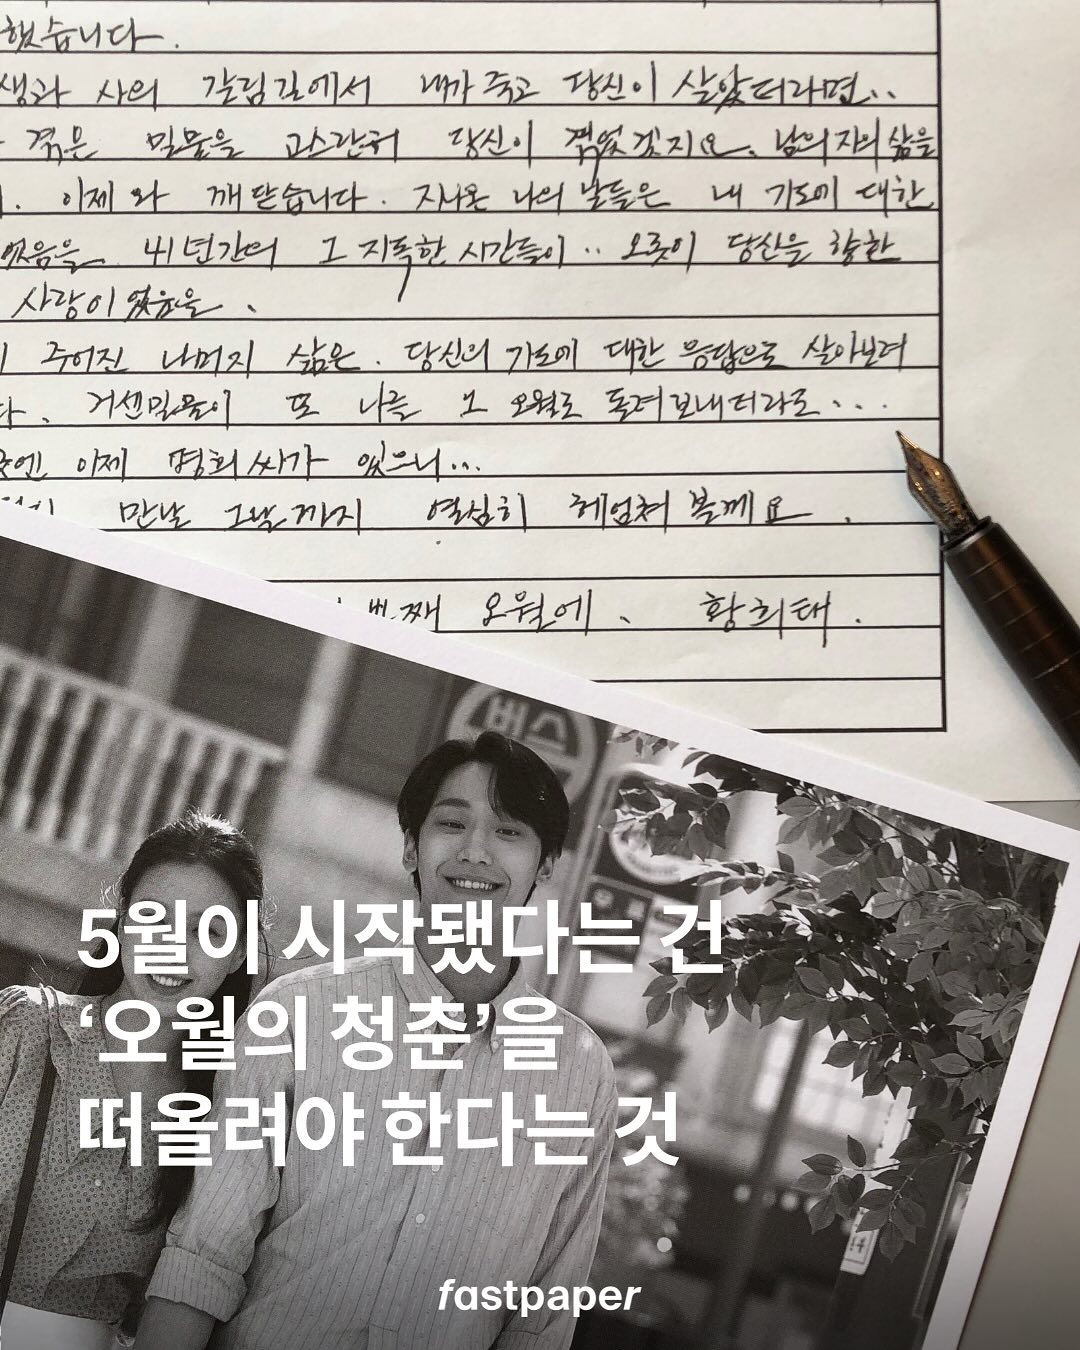 했습니다.
생과 사의 갈림길에서 내가 죽고 당신이 살았더라면..
겪은 밀물을 고스란히 당신이 겪었겠지요. 남의자의 삶을
이제 와 깨닫습니다. 지나온 나의 날들은 내 기도에 대한
였음을. 41년간의 그 지독한 시간들이.. 오롯이 당신을 향한
사랑이었음을.
주어진 나머지 삶은. 당신의 기도에 대한 응답으로 살아보려
다. 거센밀물이 또 나를 그 오월로 돌려보내더라도...
곳엔 이제 명희씨가 있으니...
만날 그날까지 열심히 헤엄쳐볼께요.
번째 오월에. 황희태.
버스
5월이 시작됐다는 건
‘오월의 청춘’을
떠올려야 한다는 것
fastpaper